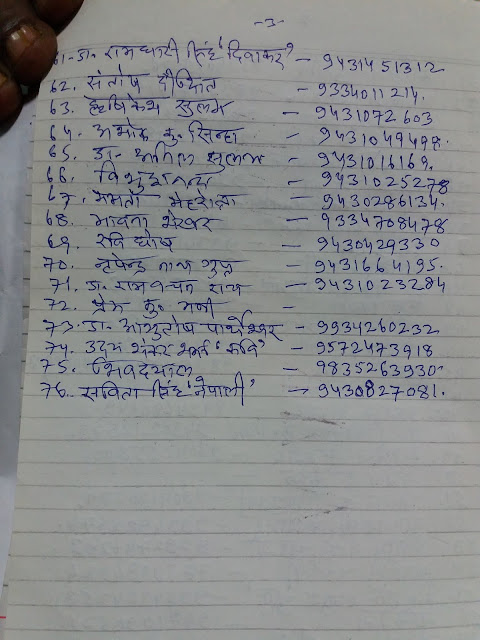 -3-
61- डा० रामधारी सिंह 'दिवाकर' - 9431451312
62. संतोष दीक्षित - 9334011214.
63. हृषिकेश सुलभ - 9431072603
64. अशोक कु० सिन्हा - 9431049498.
65. डा० अनिल सुलभ - 9431016169.
66. विभुरानन्द - 9431025278
67. ममता मेहरोत्रा - 9430286134.
68. भावना शेखर - 9334708478
69. रवि घोष - 9430429330
70. नृपेन्द्र नाथ गुप्त - 9431664195.
71. डा० रामवचन राय - 9431023284
72. प्रेम कु० मणी -
73. डा० आशुतोष पार्थेश्वर - 9934260232
74. उदय शंकर शर्मा 'कवि' - 9572473918
75. शिवदयाल - 9835263930
76. सविता सिंह 'नेपाली' - 9430827081.